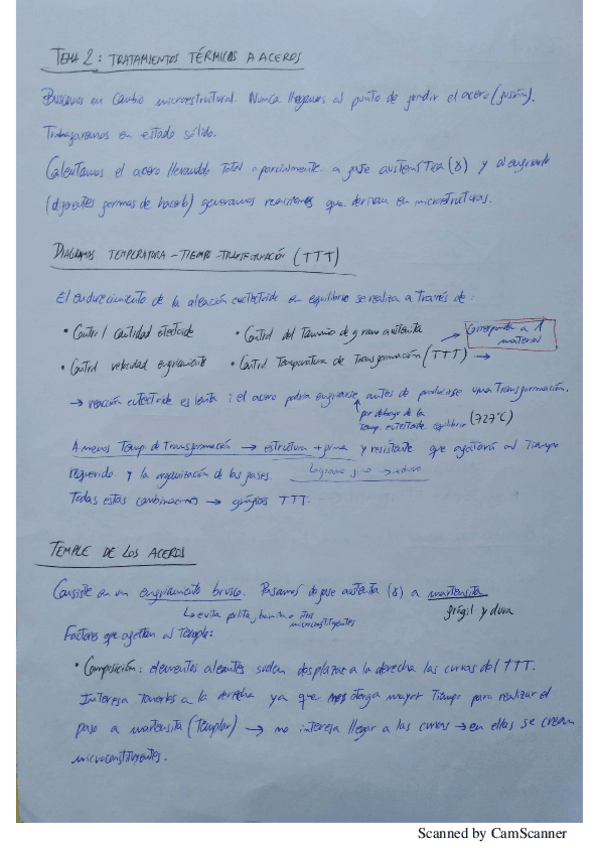 TEMA 2: TRATAMIENTOS TÉRMICOS A ACEROS
Buscamos un cambio microestructural. Nunca llegamos al punto de fundir el acero (fusión).
Trabajaremos en estado sólido.
Calentamos el acero llevandolo total o parcialmente a fase austenítica (γ) y al enfriarlo
(diferentes formas de hacerlo) generamos reacciones que derivan en microestructuras.
DIAGRAMAS TEMPERATURA - TIEMPO - TRANSFORMACIÓN (TTT)
El endurecimiento de la aleación eutectoide en equilibrio se realiza a través de:
• Control cantidad eutectoide • Control del Tamaño de grano austenita
• Control velocidad enfriamiento • Control Temperatura de Transformación (TTT) →
Corresponde a 1
material
→ reacción eutectoide es lenta; el acero podría enfriarse antes de producirse una Transformación.
por debajo de la
Temp. eutectoide equilibrio (727°C)
A menos Temp. de Transformación → estructura + fina y resistente que afectará al Tiempo
requerido y la organización de las fases.
Todas estas combinaciones → gráficos TTT.
TEMPLE DE LOS ACEROS
Consiste en un enfriamiento brusco. Pasamos de fase austenita (γ) a martensita
↳ evita perlita, bainita u otros
microconstituyentes
frágil y dura
Factores que afectan al Temple:
• Composición: elementos aleantes suelen desplazar a la derecha las curvas del TTT.
Interesa tenerlas a la derecha ya que nos otorga mayor Tiempo para realizar el
paso a martensita (Templar) → no interesa llegar a las curvas → en ellas se crean
microconstituyentes.
Scanned by CamScanner